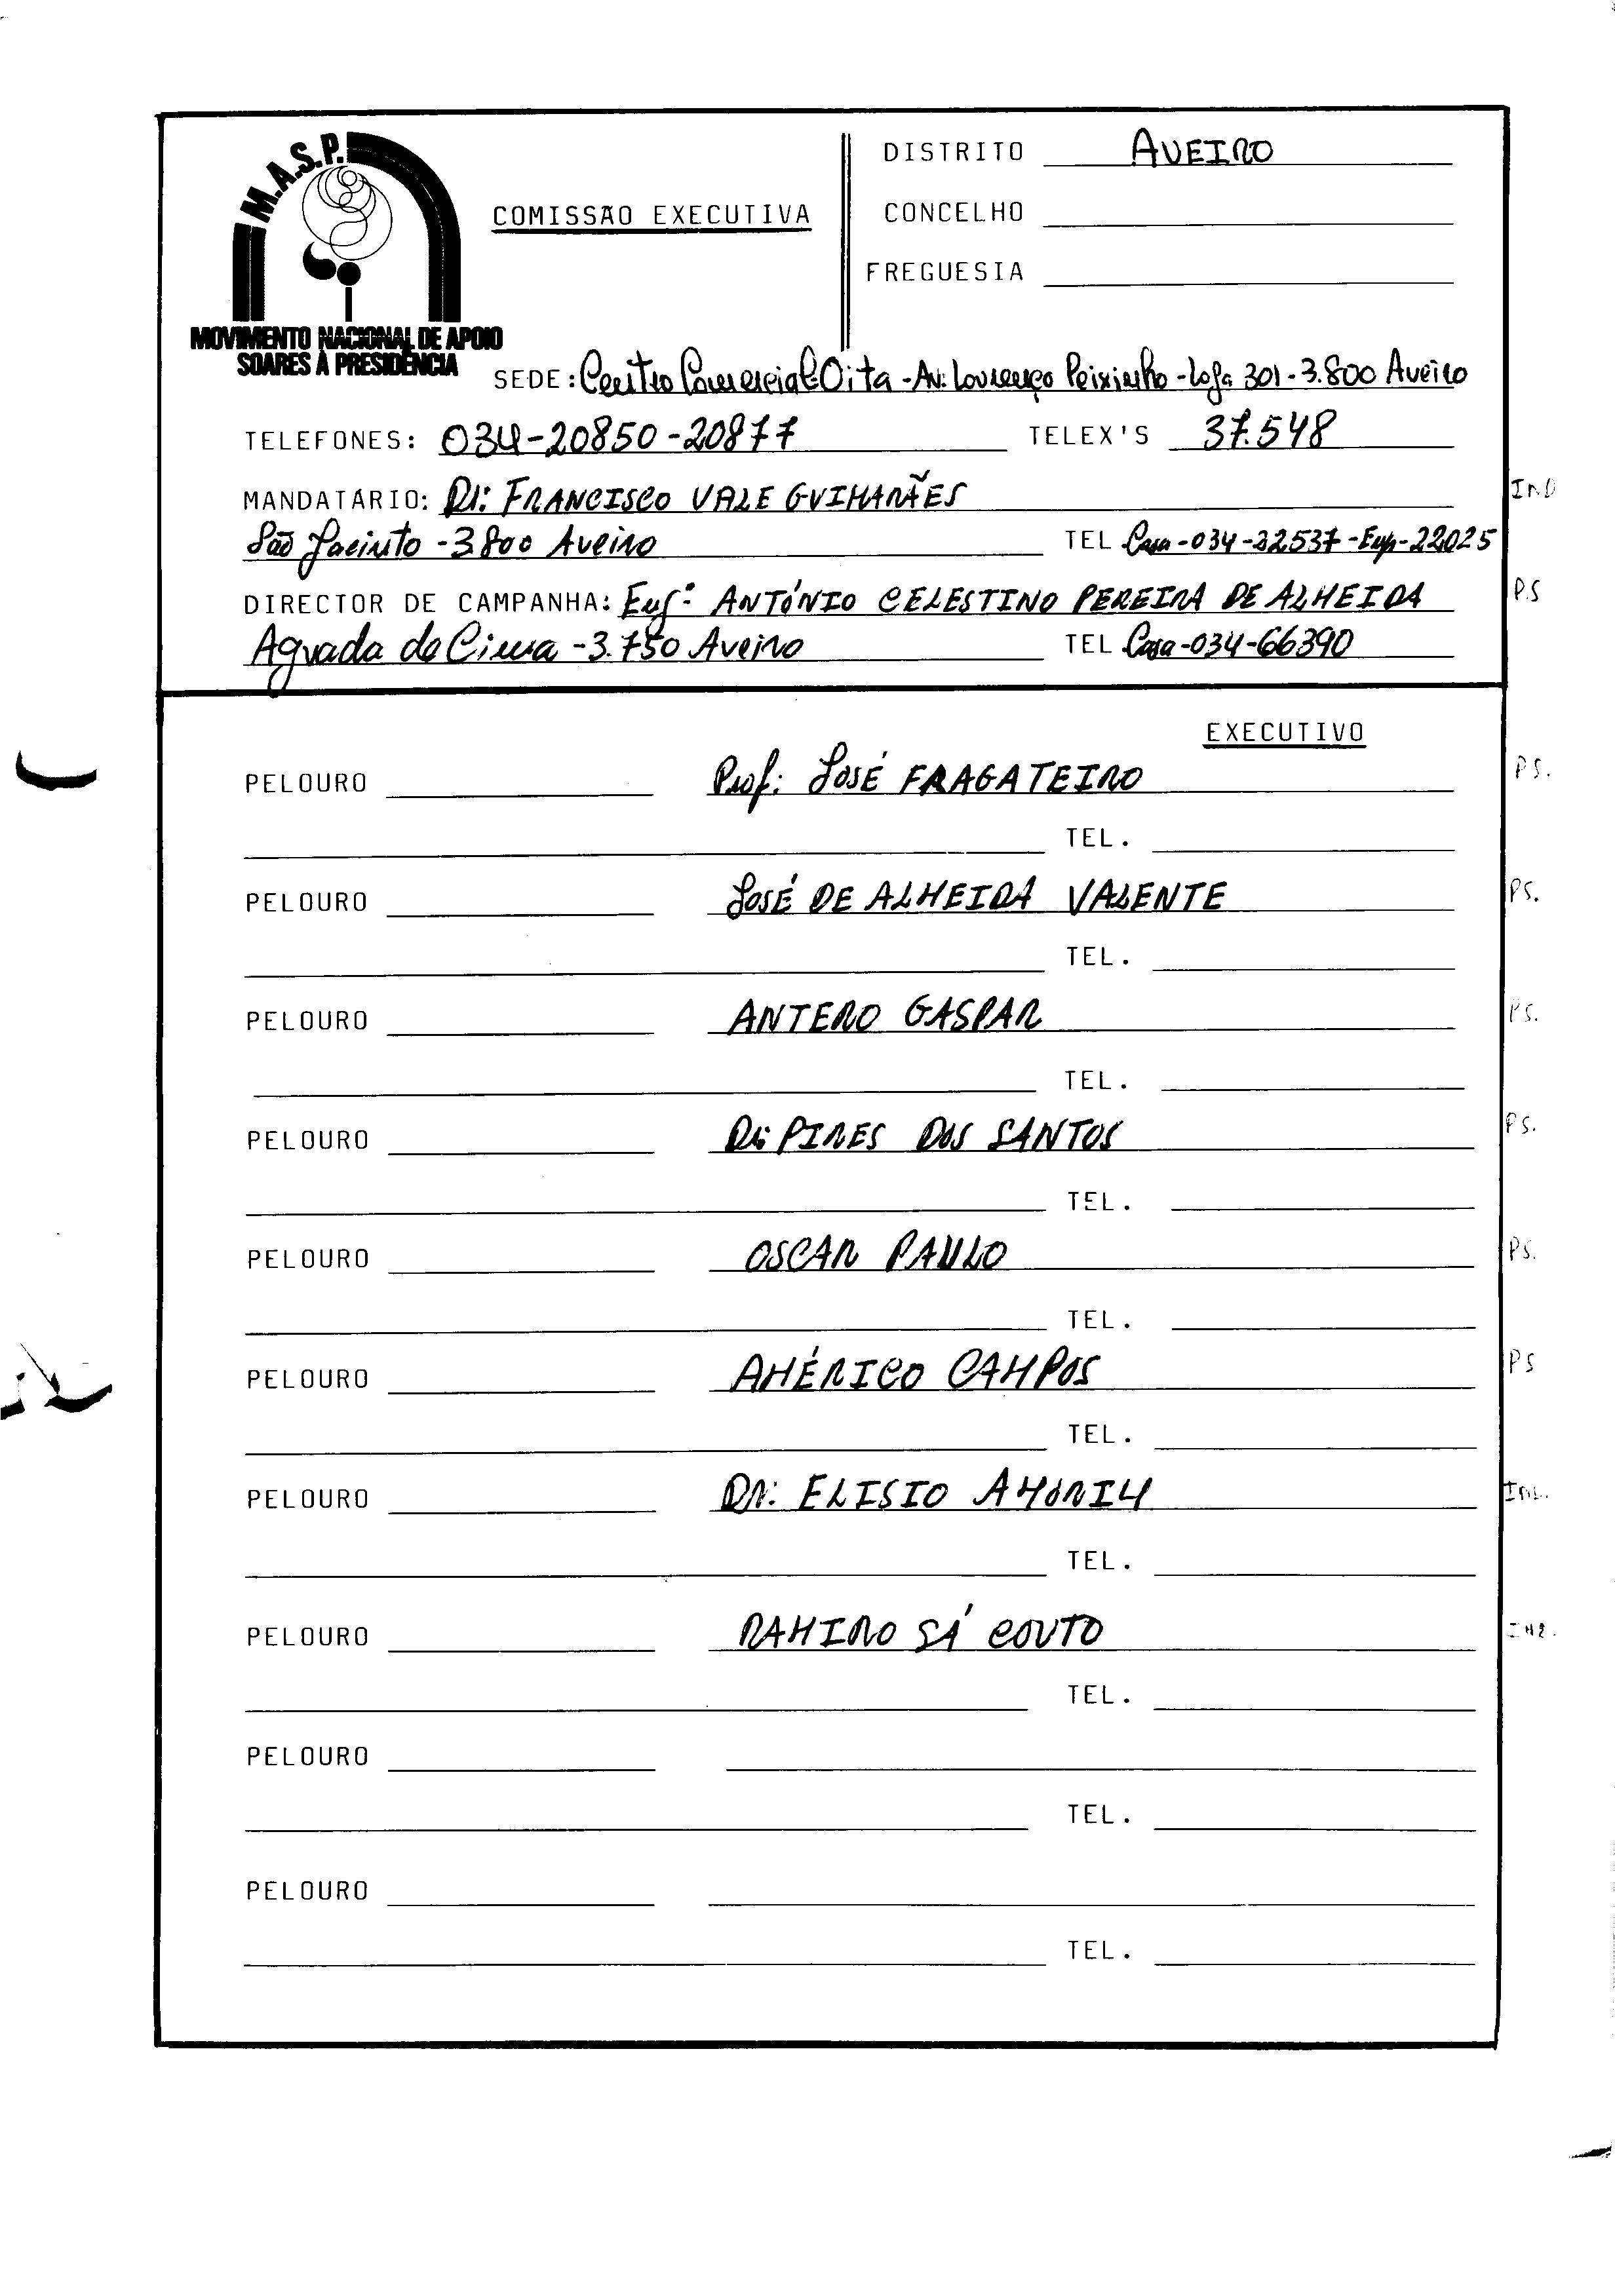 M.A.S.P.
MOVIMENTO NACIONAL DE APOIO
SOARES À PRESIDÊNCIA
COMISSÃO EXECUTIVA
DISTRITO AVEIRO
CONCELHO
FREGUESIA
SEDE: Centro Comercial Oita - Av: Lourenço Peixinho - Loja 301 - 3.800 Aveiro
TELEFONES: 034-20850-20877 TELEX'S 37.548
MANDATÁRIO: Dr: FRANCISCO VALE GUIMARÃES IND
São Jacinto - 3800 Aveiro TEL Casa-034-22537-Emp-22025
DIRECTOR DE CAMPANHA: Engº ANTÓNIO CELESTINO PEREIRA DE ALMEIDA P.S
Aguada de Cima - 3.750 Aveiro TEL Casa-034-66390
EXECUTIVO
PELOURO Prof: JOSÉ FRAGATEIRO PS.
TEL.
PELOURO JOSÉ DE ALMEIDA VALENTE PS.
TEL.
PELOURO ANTERO GASPAR PS.
TEL.
PELOURO Dr: PIRES DOS SANTOS PS.
TEL.
PELOURO OSCAR PAULO PS.
TEL.
PELOURO AMÉRICO CAMPOS PS
TEL.
PELOURO Dr: ELISIO AMORIM
TEL.
PELOURO RAMIRO SÁ COUTO
TEL.
PELOURO
TEL.
PELOURO
TEL.